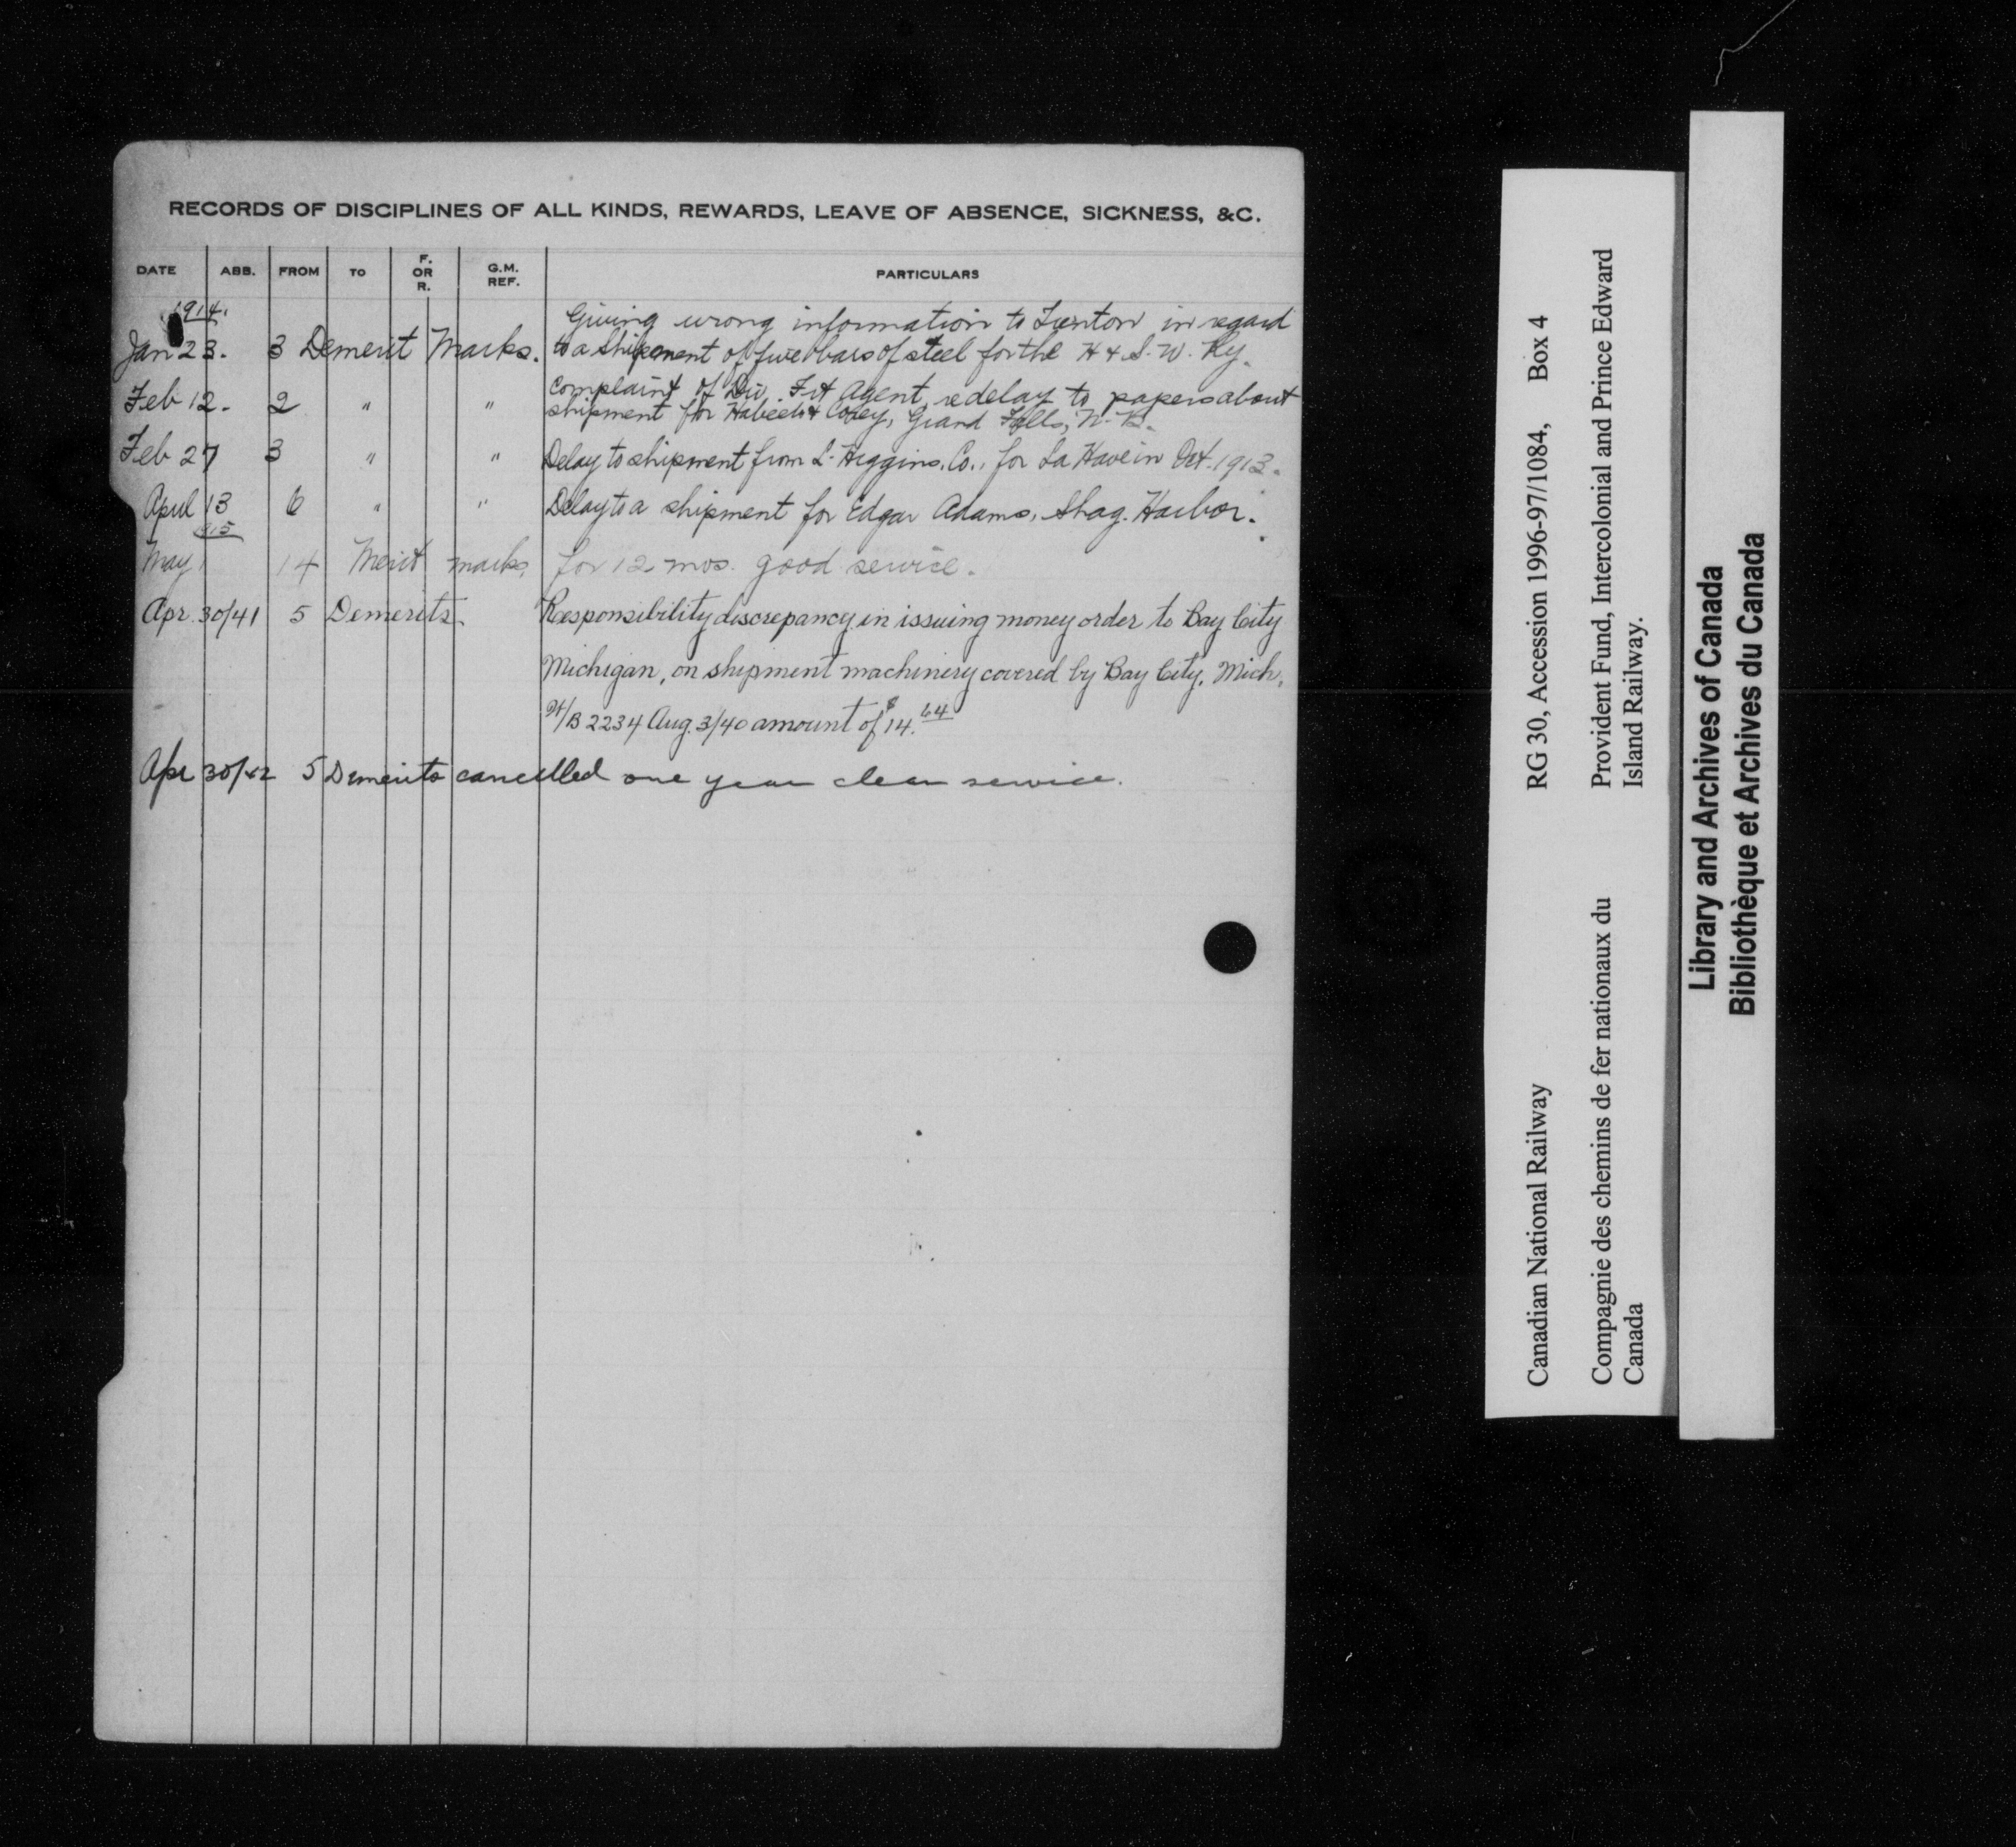 RECORDS OF DISCIPLINES OF ALL KINDS, REWARDS, LEAVE OF ABSENCE, SICKNESS, &C.
DATE ABB. FROM TO F. OR R. G.M. REF. PARTICULARS
1914.
Giving wrong information to in regard
Jan 23. 3 Demerit Marks. to a shipment of five bars of steel for the H & S. W. Ry.
complaint of Div. Frt Agent, re delay to papers about
Feb 12. 2 " " shipment for & Corey, Grand Falls, N. B.
Feb 27 3 " " Delay to shipment from L. Higgins, Co., for La Have in Oct. 1913.
April 13 6 " " Delay to a shipment for Edgar Adams, Shag. Harbor.
1915
May 1 14 Merit marks, for 12 mos. good service.
Apr. 30/41 5 Demerits. Responsibility discrepancy in issuing money order to Bay City
Michigan, on shipment machinery covered by Bay City, Mich,
W/B 2234 Aug. 3/40 amount of $14.64
Apr 30/42 5 Demerits cancelled one year clear service.
Canadian National Railway RG 30, Accession 1996-97/1084, Box 4
Compagnie des chemins de fer nationaux du Provident Fund, Intercolonial and Prince Edward
Canada Island Railway.
Library and Archives of Canada
Bibliothèque et Archives du Canada